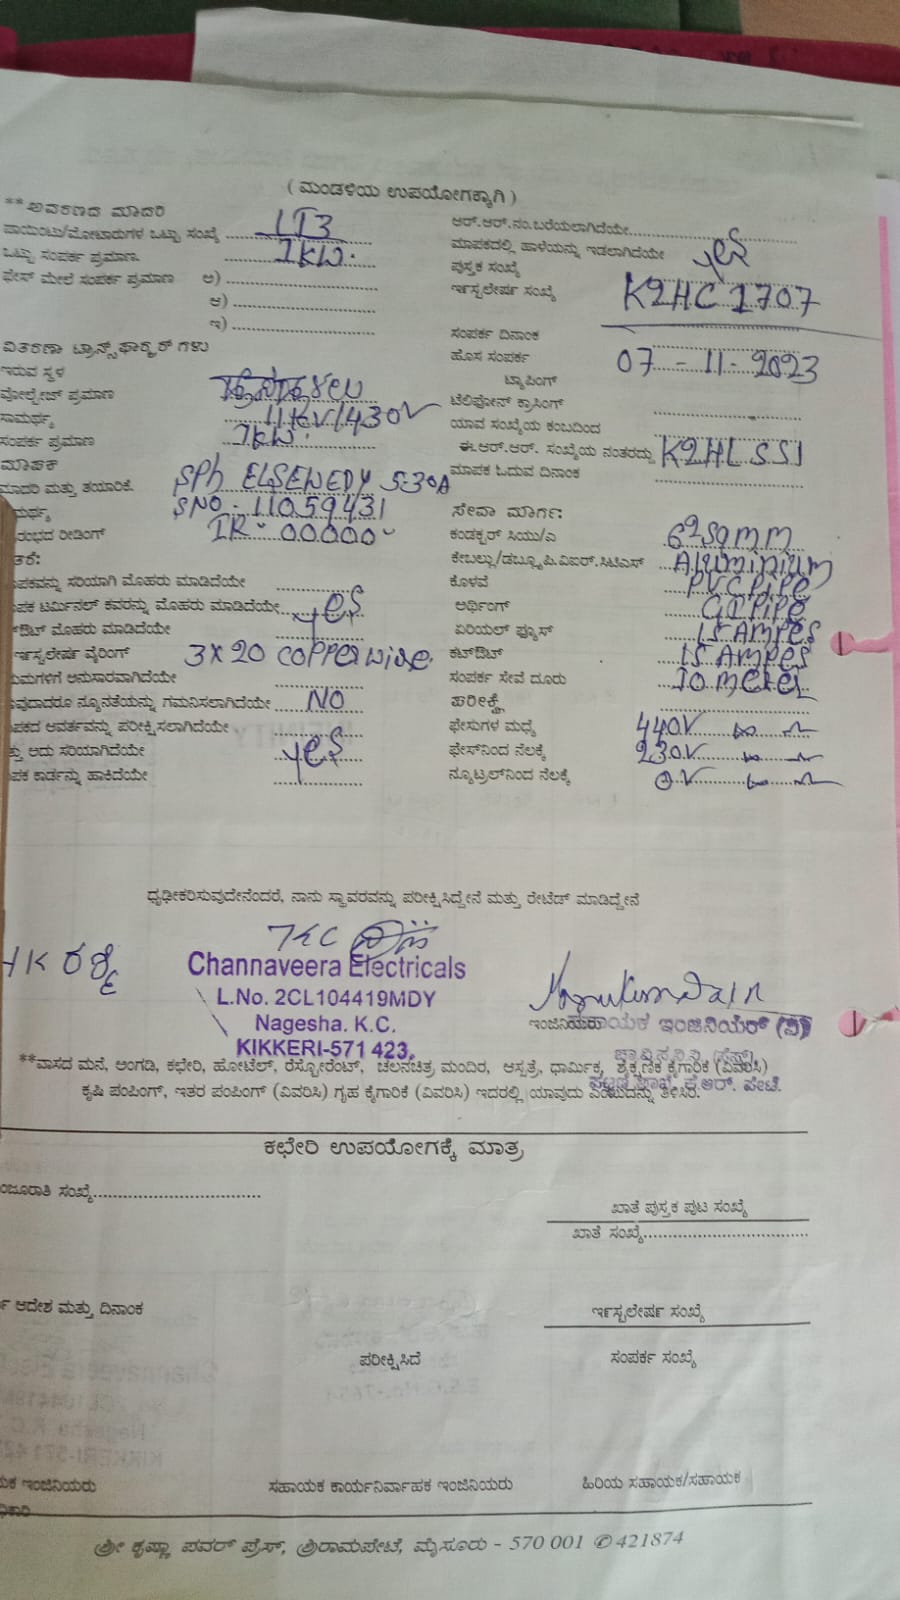 ( ಮಂಡಳಿಯ ಉಪಯೋಗಕ್ಕಾಗಿ )
**ಆವರಣದ ಮಾದರಿ
ಪಾಯಿಂಟು/ಮೋಟಾರುಗಳ ಒಟ್ಟು ಸಂಖ್ಯೆ LT3
ಒಟ್ಟು ಸಂಪರ್ಕ ಪ್ರಮಾಣ. 1KW.
ಫೇಸ್ ಮೇಲೆ ಸಂಪರ್ಕ ಪ್ರಮಾಣ ಅ)
ಆ)
ಇ)
ವಿತರಣಾ ಟ್ರಾನ್ಸ್‌ಫಾರ್ಮರ್ ಗಳು
ಇರುವ ಸ್ಥಳ
ವೋಲ್ಟೇಜ್ ಪ್ರಮಾಣ
ಸಾಮರ್ಥ್ಯ 11KV/430V
ಸಂಪರ್ಕ ಪ್ರಮಾಣ 1KW.
ಮಾಪಕ
ಮಾದರಿ ಮತ್ತು ತಯಾರಿಕೆ. SPh ELSEWEDY 5-30A
ಮರ್ಥ್ಯ SNO - 11059431
ರಂಭದ ರೀಡಿಂಗ್ IR - 00000
ತರೆ:
ಪಕವನ್ನು ಸರಿಯಾಗಿ ಮೊಹರು ಮಾಡಿದೆಯೇ
ಪಕ ಟರ್ಮಿನಲ್ ಕವರನ್ನು ಮೊಹರು ಮಾಡಿದೆಯೇ yes
ಔಟ್ ಮೊಹರು ಮಾಡಿದೆಯೇ
ರ್ಇಸ್ಟಲೇರ್ಷ ವೈರಿಂಗ್ 3X20 COPPER WIRE.
ಯಮಗಳಿಗೆ ಅನುಸಾರವಾಗಿದೆಯೇ
ವುದಾದರೂ ನ್ಯೂನತೆಯನ್ನು ಗಮನಿಸಲಾಗಿದೆಯೇ NO
ಪಕದ ಆವರ್ತವನ್ನು ಪರೀಕ್ಷಿಸಲಾಗಿದೆಯೇ
ತ್ತು ಅದು ಸರಿಯಾಗಿದೆಯೇ yes
ಪಕ ಕಾರ್ಡನ್ನು ಹಾಕಿದೆಯೇ
ಆರ್.ಆರ್.ನಂ.ಬರೆಯಲಾಗಿದೆಯೇ
ಮಾಪಕದಲ್ಲಿ ಹಾಳೆಯನ್ನು ಇಡಲಾಗಿದೆಯೇ yes
ಪುಸ್ತಕ ಸಂಖ್ಯೆ
ರ್ಇಸ್ಟಲೇರ್ಷ ಸಂಖ್ಯೆ K2HC 1707
ಸಂಪರ್ಕ ದಿನಾಂಕ
ಹೊಸ ಸಂಪರ್ಕ 07-11-2023
ಟ್ಯಾಪಿಂಗ್
ಟೆಲಿಫೋನ್ ಕ್ರಾಸಿಂಗ್
ಯಾವ ಸಂಖ್ಯೆಯ ಕಂಬದಿಂದ
ಈ.ಆರ್.ಆರ್. ಸಂಖ್ಯೆಯ ನಂತರದ್ದು K2HL 551
ಮಾಪಕ ಓದುವ ದಿನಾಂಕ
ಸೇವಾ ಮಾರ್ಗ:
ಕಂಡಕ್ಟರ್ ಸಿಯು/ಎ 6 sqmm
ಕೇಬಲ್ಲು/ಡಬ್ಲ್ಯೂ.ಪಿ.ವಿಐಆರ್.ಸಿಟಿಎಸ್ Aluminium
ಕೊಳವೆ PVC PIPE
ಅರ್ಥಿಂಗ್ GI PIPE
ಏರಿಯಲ್ ಫ್ಯೂಸ್ 15 AMPES
ಕಟ್‌ಔಟ್ 15 AMPES
ಸಂಪರ್ಕ ಸೇವೆ ದೂರು 10 meter
ಪರೀಕ್ಷೆ
ಫೇಸುಗಳ ಮಧ್ಯೆ 440V
ಫೇಸ್‌ನಿಂದ ನೆಲಕ್ಕೆ 230V
ನ್ಯೂಟ್ರಲ್‌ನಿಂದ ನೆಲಕ್ಕೆ 0V
ಧೃಢೀಕರಿಸುವುದೇನೆಂದರೆ, ನಾನು ಸ್ಥಾವರವನ್ನು ಪರೀಕ್ಷಿಸಿದ್ದೇನೆ ಮತ್ತು ರೇಟೆಡ್ ಮಾಡಿದ್ದೇನೆ
Channaveera Electricals
L.No. 2CL104419MDY
Nagesha. K.C.
KIKKERI-571 423.
ಸಹಾಯಕ ಇಂಜಿನಿಯರ್ (ವಿ)
**ವಾಸದ ಮನೆ, ಅಂಗಡಿ, ಕಛೇರಿ, ಹೋಟೆಲ್, ರೆಸ್ಟೋರೆಂಟ್, ಚಲನಚಿತ್ರ ಮಂದಿರ, ಆಸ್ಪತ್ರೆ, ಧಾರ್ಮಿಕ, ಶೈಕ್ಷಣಿಕ ಕೈಗಾರಿಕೆ (ವಿವರಿಸಿ)
ಕೃಷಿ ಪಂಪಿಂಗ್, ಇತರ ಪಂಪಿಂಗ್ (ವಿವರಿಸಿ) ಗೃಹ ಕೈಗಾರಿಕೆ (ವಿವರಿಸಿ) ಇದರಲ್ಲಿ ಯಾವುದು ಎಂಬುದನ್ನು ತಿಳಿಸಿರಿ.
ಕಛೇರಿ ಉಪಯೋಗಕ್ಕೆ ಮಾತ್ರ
ಂಜೂರಾತಿ ಸಂಖ್ಯೆ
ಖಾತೆ ಪುಸ್ತಕ ಪುಟ ಸಂಖ್ಯೆ
ಖಾತೆ ಸಂಖ್ಯೆ
ಆದೇಶ ಮತ್ತು ದಿನಾಂಕ
ರ್ಇಸ್ಟಲೇರ್ಷ ಸಂಖ್ಯೆ
ಪರೀಕ್ಷಿಸಿದೆ
ಸಂಪರ್ಕ ಸಂಖ್ಯೆ
ಯಕ ಇಂಜಿನಿಯರು
ಸಹಾಯಕ ಕಾರ್ಯನಿರ್ವಾಹಕ ಇಂಜಿನಿಯರು
ಹಿರಿಯ ಸಹಾಯಕ/ಸಹಾಯಕ
ಶ್ರೀ ಕೃಷ್ಣಾ ಪವರ್ ಪ್ರೆಸ್, ಶ್ರೀರಾಮಪೇಟೆ, ಮೈಸೂರು - 570 001 ✆ 421874